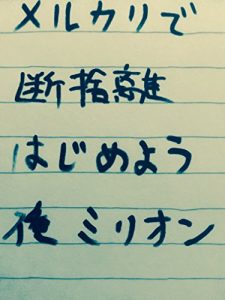 メルカリで
断捨離
はじめよう
俺 ミリオン